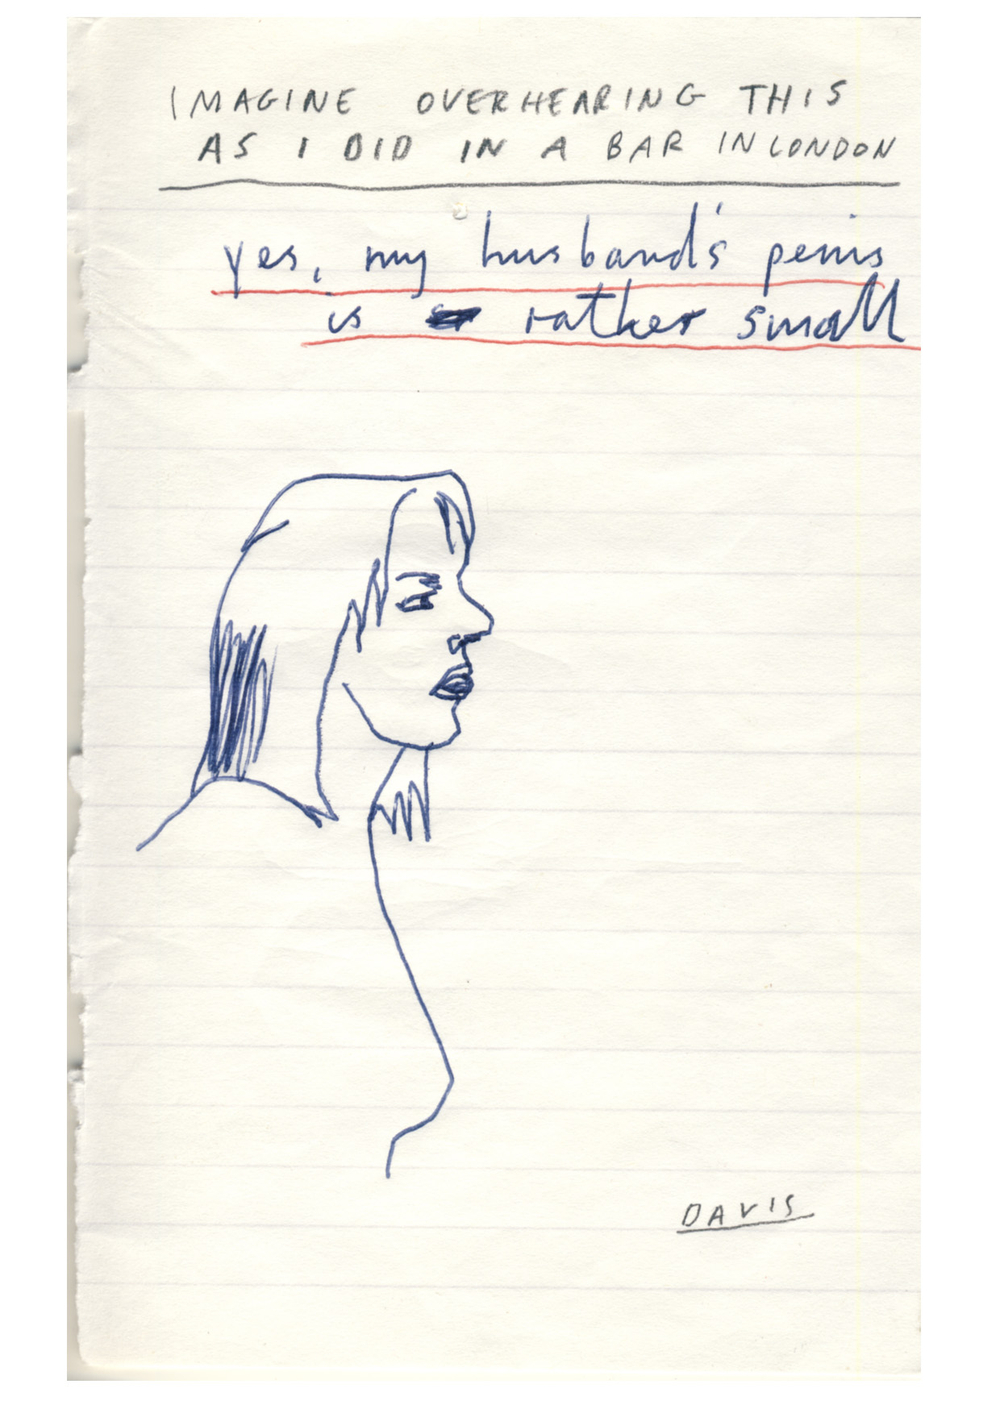 IMAGINE OVERHEARING THIS
AS I DID IN A BAR IN LONDON
yes, my husband's penis
is rather small
DAVIS